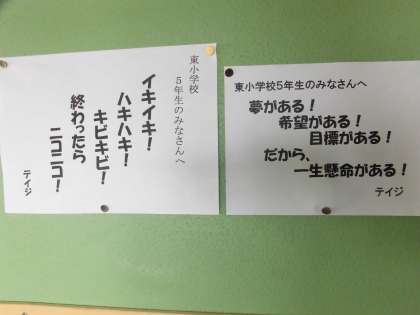 東小学校
５年生のみなさんへ
イキイキ！
ハキハキ！
キビキビ！
終わったら
ニコニコ！
テイジ
東小学校5年生のみなさんへ
夢がある！
希望がある！
目標がある！
だから、
一生懸命がある！
テイジ